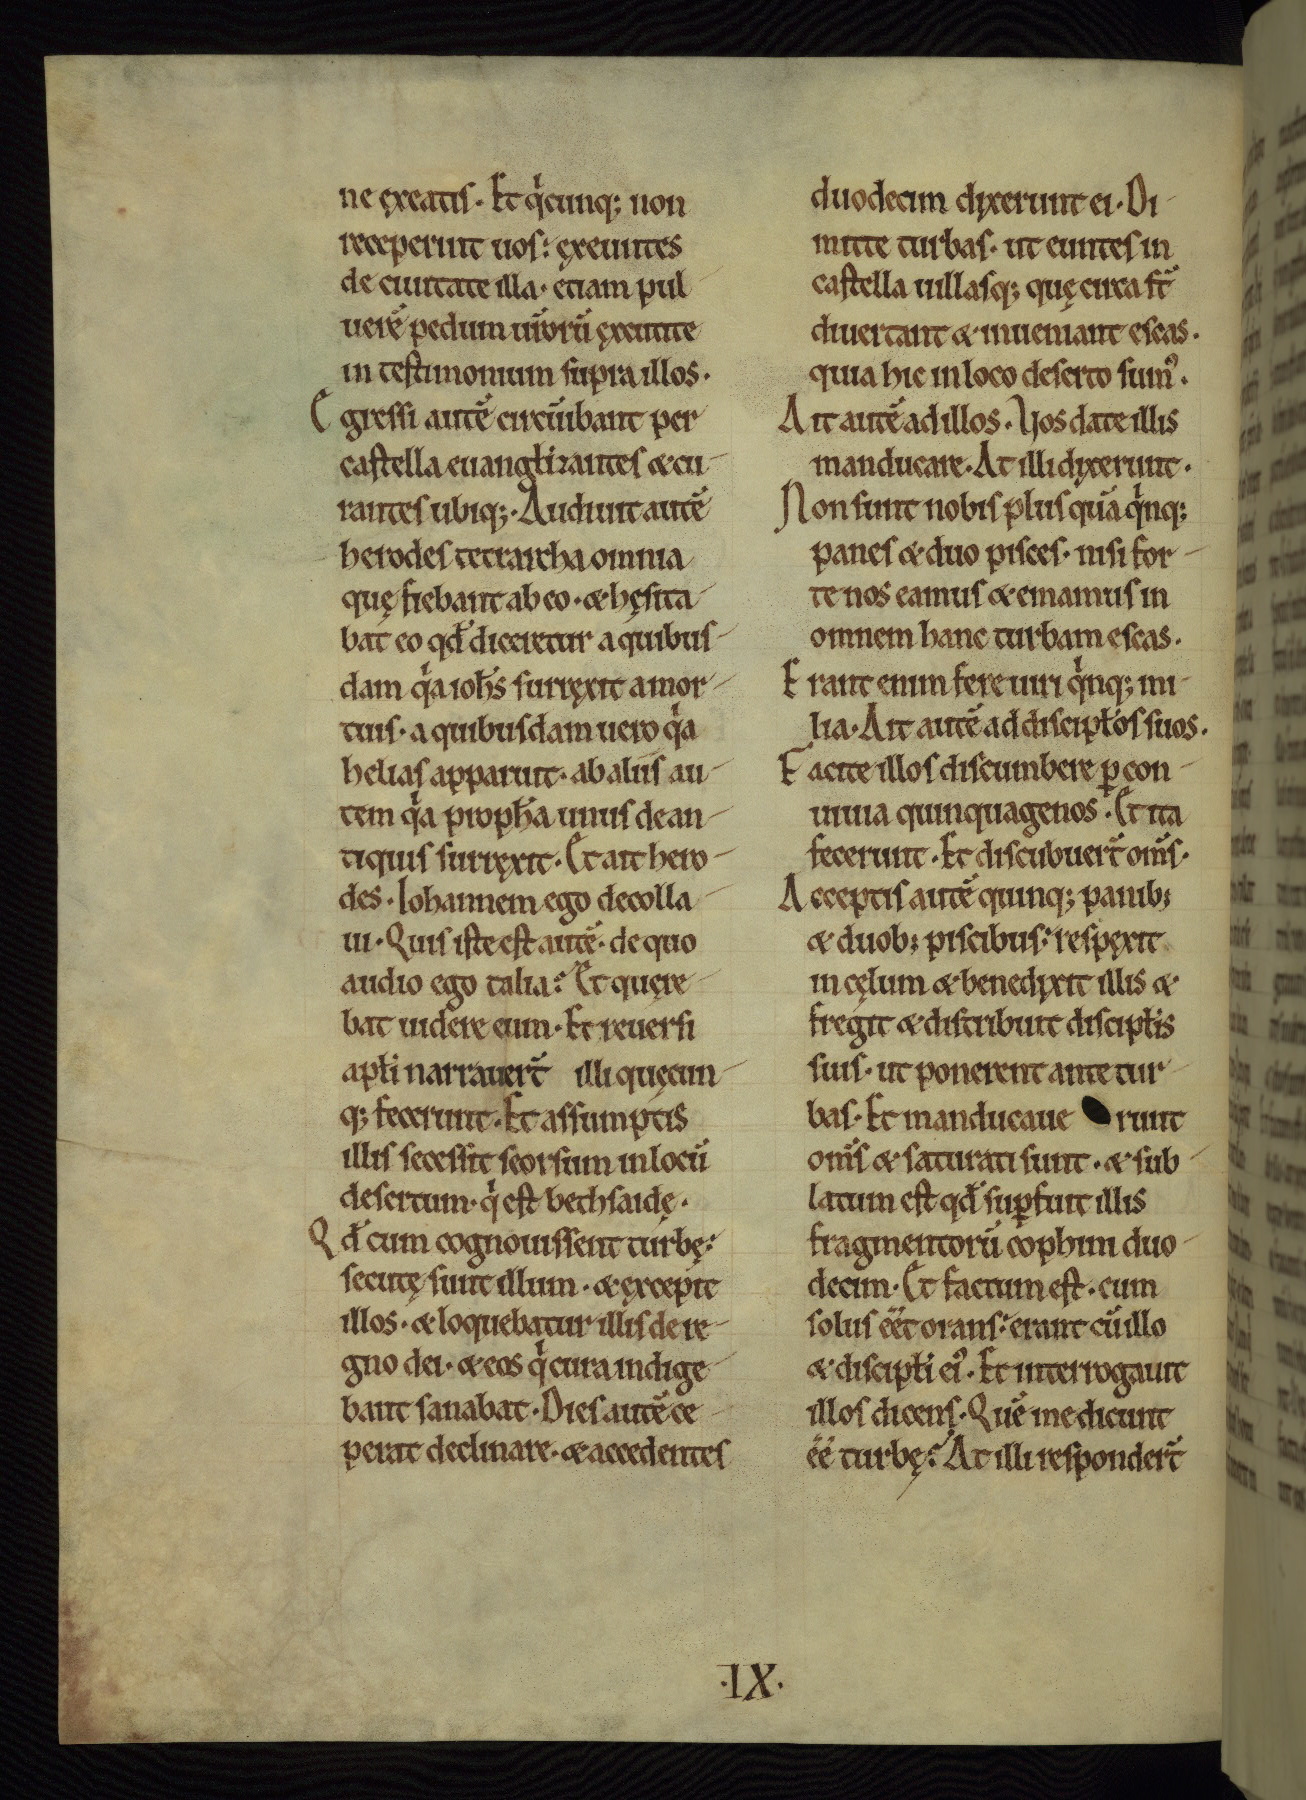 ne ęxeatis · Et qͥcunq; non
receperint uos : ęxeuntes
de ciuitate illa · etiam pul
uerē pedum ur̄orū ęxcutite
in testimonium supra illos ·
Egressi autē circūibant per
castella euangłizantes & cu
rantes ubiq; · Audiuit autē
herodes tetrarcha omnia
quę fiebant ab eo · & hęsita
bat eo qd̄ diceretur a quibus
dam qͥa ioh̄s surręxit a mor
tuis · a quibusdam uero qͥa
helias apparuit · ab aliis au
tem qͥa proph̄a unus de an
tiquis surręxit · Et ait hero
des · Iohannem ego decolla
ui · Quis iste est autē · de quo
audio ego talia : Et quęre
bat uidere eum · Et reuersi
apłi narrauer̄t illi quęcun
q; fecerunt · Et assumptis
illis secessit seorsum in locū
desertum · qͥ est bethsaidę ·
Qd̄ cum cognouissent turbę :
secutę sunt illum · & ęxcepit
illos · & loquebatur illis de re
gno dei · & eos qͥ cura indige
bant sanabat · Dies autē ce
perat declinare · & accedentes
duodecim dixerunt ei · Di
mitte turbas · ut euntes in
castella uillasq; quę circa st̄
diuertant & inueniant escas ·
quia hic in loco deserto sumꝰ ·
Ait autē ad illos · Vos date illis
manducare · At illi dixerunt ·
Non sunt nobis plus quā qͥnq;
panes & duo pisces · nisi for
te nos eamus & emamus in
omnem hanc turbam escas ·
Erant enim fere uiri qͥnq; mi
lia · Ait autē ad discipłos suos ·
Facite illos discumbere ꝑ con
uiuia quinquagenos · Et ita
fecerunt · Et discubuer̄t om̄s ·
Acceptis autē quinq; panib;
& duob; piscibus : respęxit
in cęlum & benedixit illis &
fregit & distribuit discipłis
suis · ut ponerent ante tur
bas · Et manducaue runt
om̄s & saturati sunt · & sub
latum est qd̄ suꝑfuit illis
fragmentorū cophini duo
decim · Et factum est · cum
solus eēt orans : erant cū illo
& discipłi eiꝰ · Et interrogauit
illos dicens · Quē me dicunt
eē turbę : At illi responder̄t
· IX ·